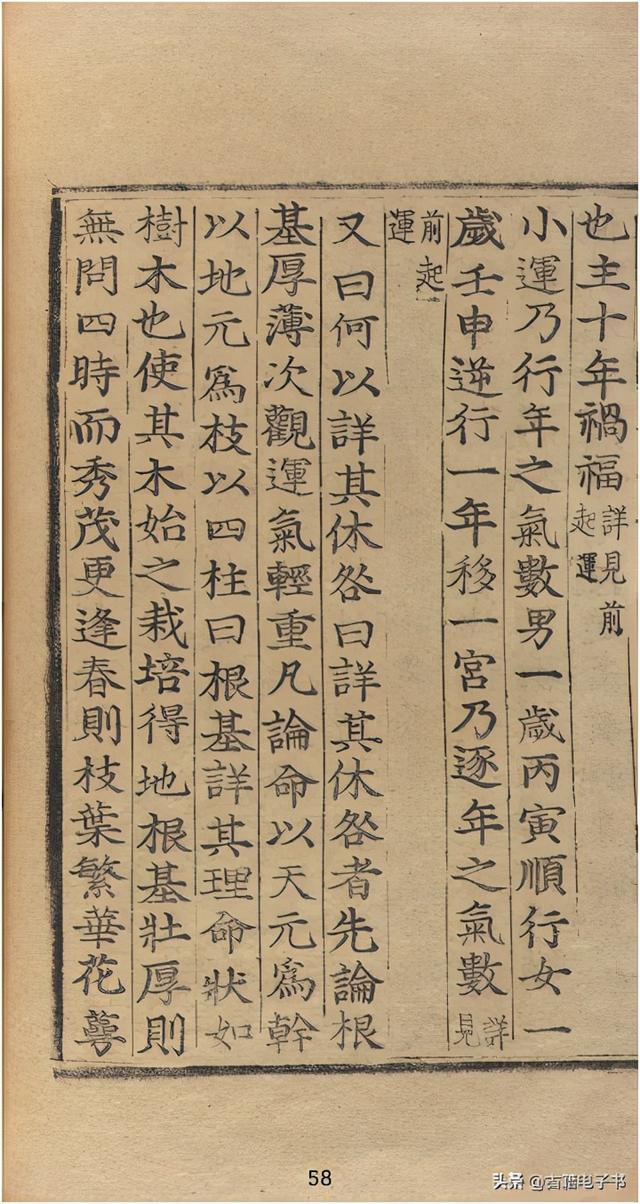 也主十年禍福詳見前起運
小運乃行年之氣數男一歲丙寅順行女一
歲壬申逆行一年移一宮乃逐年之氣數詳見
前起運
又曰何以詳其休咎曰詳其休咎者先論根
基厚薄次觀運氣輕重凡論命以天元爲幹
以地元爲枝以四柱曰根基詳其理命狀如
樹木也使其木始之栽培得地根基壯厚則
無問四時而秀茂更逢春則枝葉繁華花萼
58
头条@古籍电子书